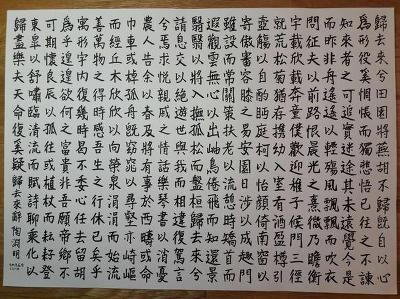 歸去來兮田園將蕪胡不歸既自以心
為形役奚惆悵而獨悲悟已往之不諫
知來者之可追實迷途其未遠覺今是
而昨非舟遙遙以輕颺風飄飄而吹衣
問征夫以前路恨晨光之熹微乃瞻衡
宇載欣載奔童僕歡迎稚子候門三徑
就荒松菊猶存攜幼入室有酒盈樽引
壺觴以自酌眄庭柯以怡顏倚南窗以
寄傲審容膝之易安園日涉以成趣門
雖設而常關策扶老以流憩時矯首而
遐觀雲無心以出岫鳥倦飛而知還景
翳翳以將入撫孤松而盤桓歸去來兮
請息交以絕遊世與我而相違復駕言
兮焉求悅親戚之情話樂琴書以消憂
農人告余以春及將有事於西疇或命
巾車或棹孤舟既窈窕以尋壑亦崎嶇
而經丘木欣欣以向榮泉涓涓而始流
善萬物之得時感吾生之行休已矣乎
寓形宇內復幾時曷不委心任去留胡
為乎遑遑欲何之富貴非吾願帝鄉不
可期懷良辰以孤往或植杖而耘耔登
東皋以舒嘯臨清流而賦詩聊乘化以
歸盡樂夫天命復奚疑歸去來辭 陶淵明